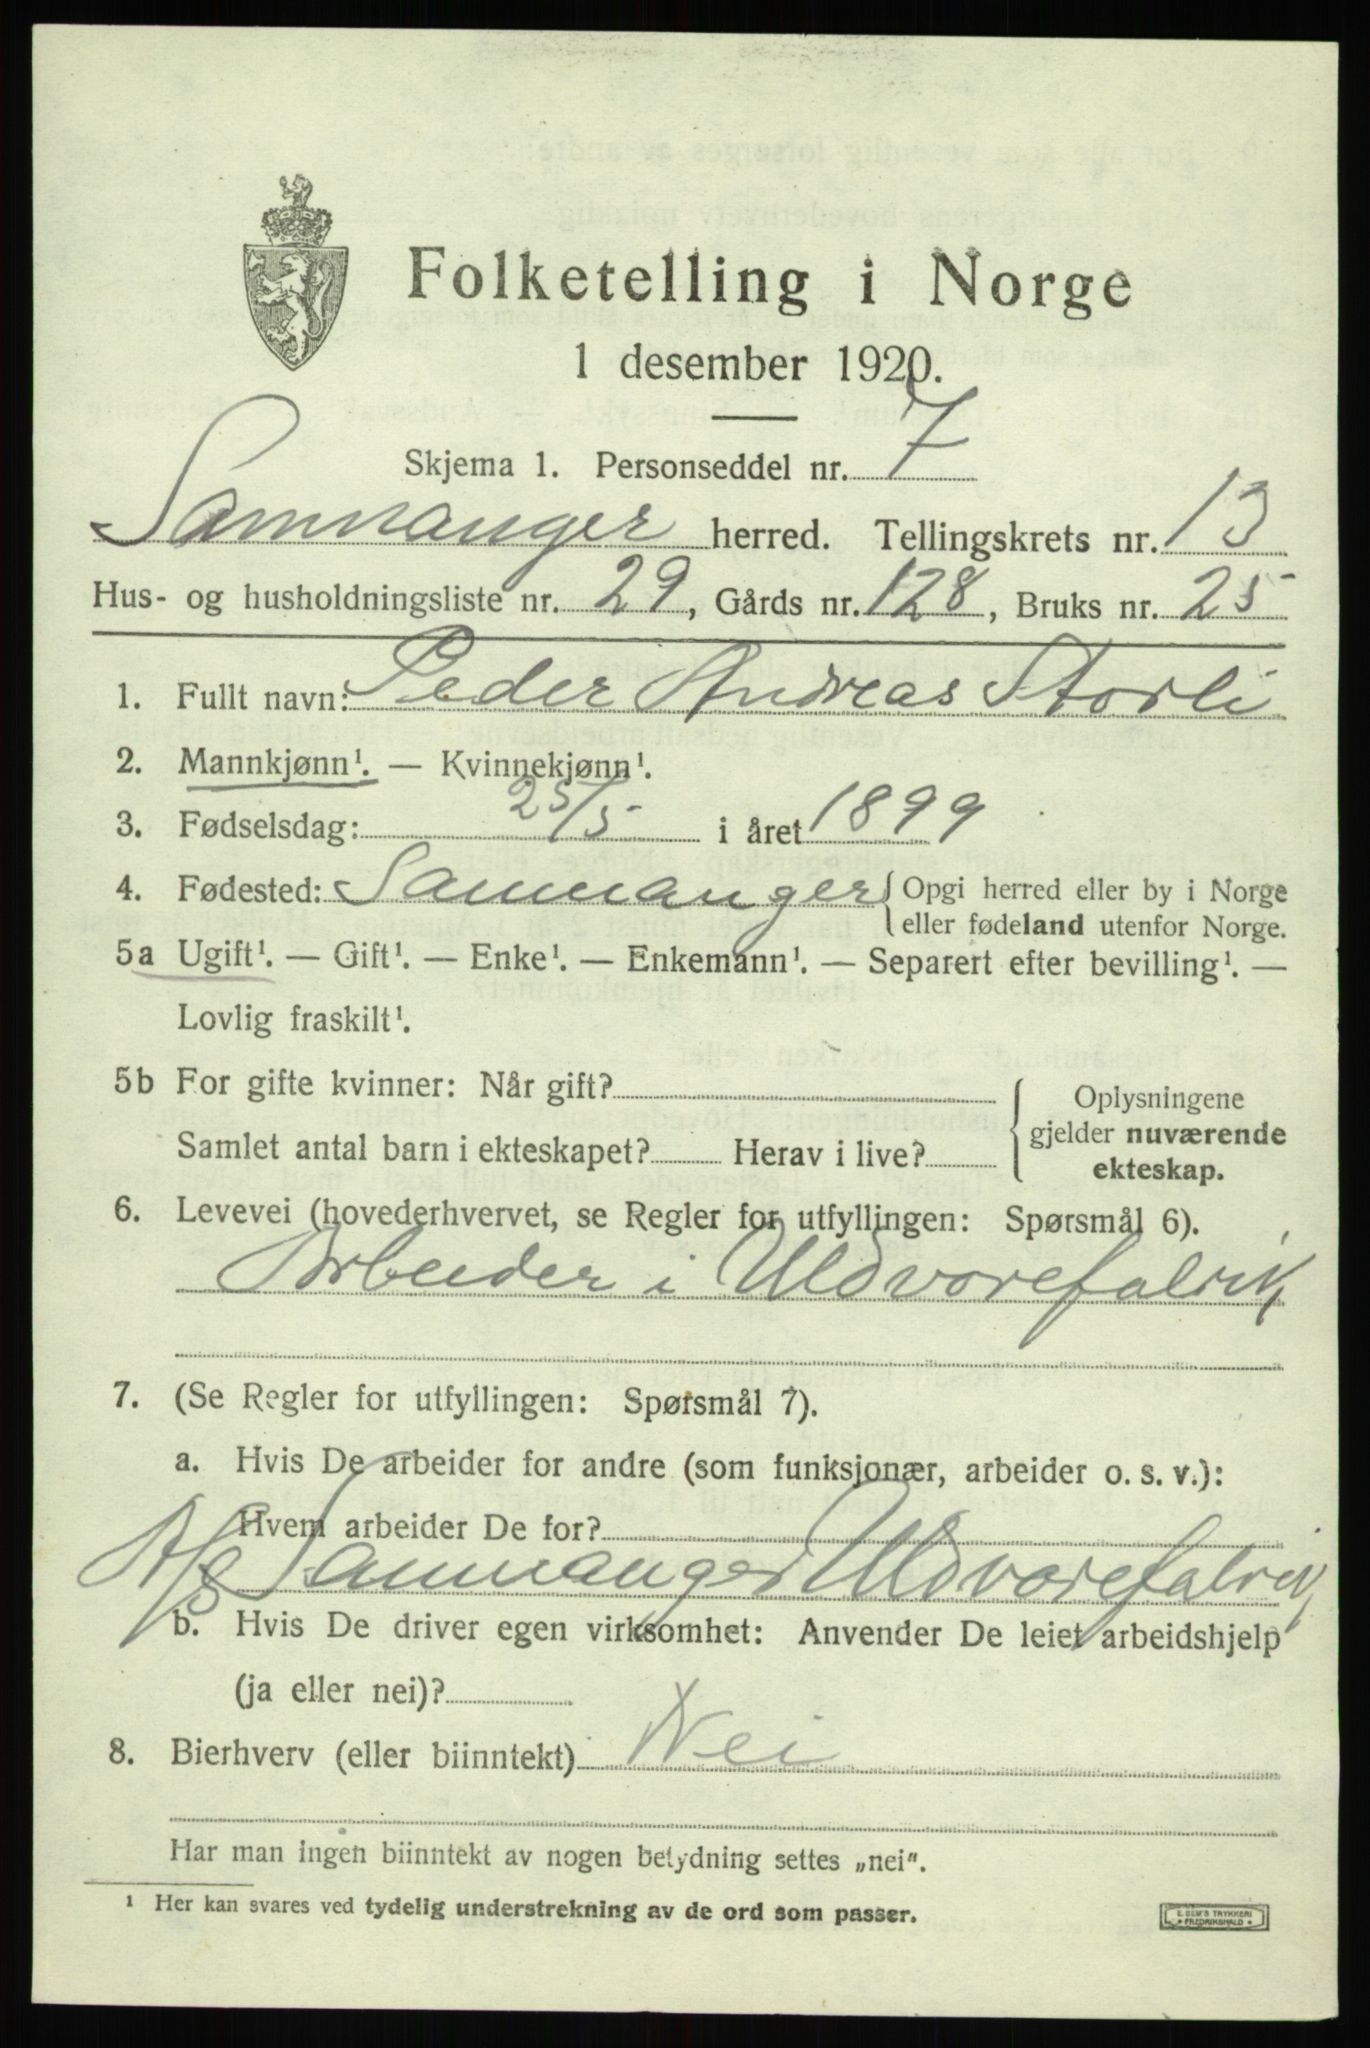 Folketelling i Norge
1 desember 1920.
Skjema 1. Personseddel nr. 7
Samnanger herred. Tellingskrets nr. 13
Hus- og husholdningsliste nr. 29, Gårds nr. 128, Bruks nr. 25
1. Fullt navn: Peder Andreas Storli
2. Mannkjønn¹. — Kvinnekjønn¹.
3. Fødselsdag: 25/5 i året 1899
4. Fødested: Samnanger { Opgi herred eller by i Norge
eller fødeland utenfor Norge.
5a Ugift¹. — Gift¹. — Enke¹. — Enkemann¹. — Separert efter bevilling¹. —
Lovlig fraskilt¹.
5b For gifte kvinner: Når gift?
Samlet antal barn i ekteskapet? Herav i live?
{ Oplysningene
gjelder nuværende
ekteskap.
6. Levevei (hovederhvervet, se Regler for utfyllingen: Spørsmål 6).
Arbeider i Uldvarefabrik
7. (Se Regler for utfyllingen: Spørsmål 7).
a. Hvis De arbeider for andre (som funksjonær, arbeider o. s. v.):
Hvem arbeider De for?
A/S Samnanger Uldvarefabrik
b. Hvis De driver egen virksomhet: Anvender De leiet arbeidshjelp
(ja eller nei)?
8. Bierhverv (eller biinntekt) Nei
Har man ingen biinntekt av nogen betydning settes „nei".
¹ Her kan svares ved tydelig understrekning av de ord som passer.
E. SEM'S TRYKKERI
FREDRIKSHALD